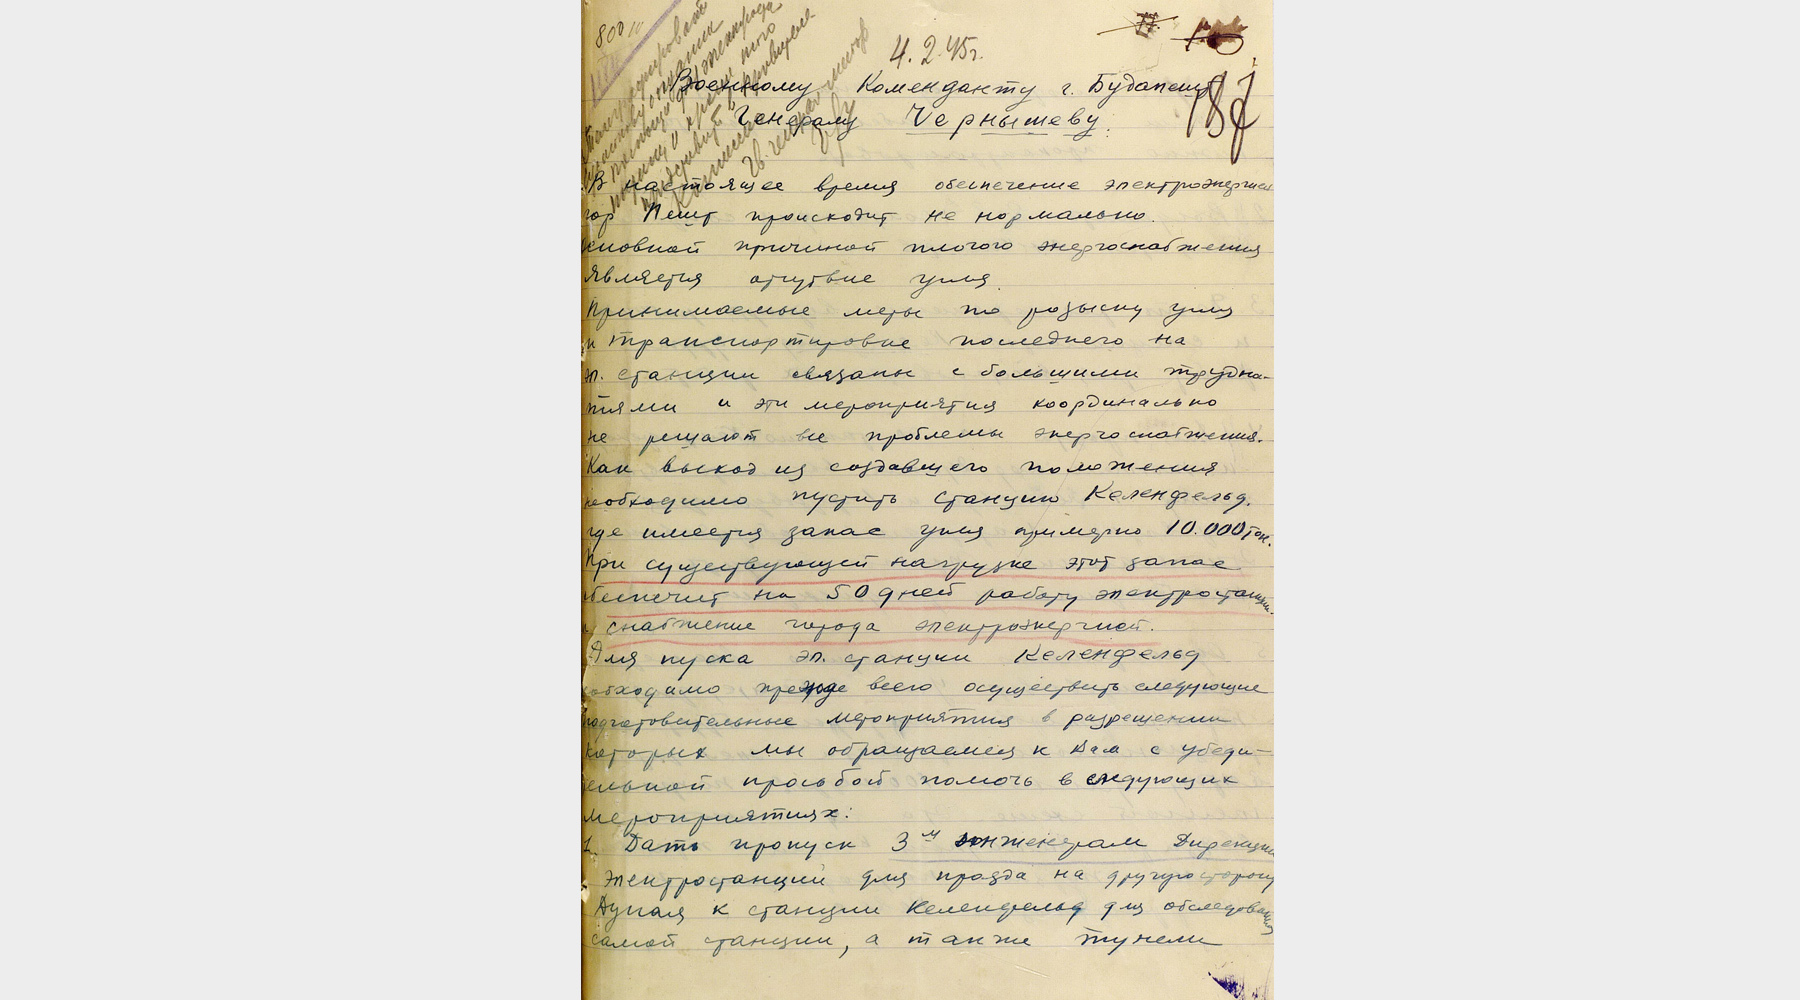 800
4.2.45г.
187
Военному Коменданту г. Будапешт
Генералу Чернышеву.
В настоящее время обеспечение электроэнергией
гор Пешт происходит не нормально.
основной причиной плогого энергоснабжения
является отсутвие угля.
Принимаемые меры по розыску угля
и транспортировке последнего на
эл. станции связаны с большими трудно-
тями и эти мероприятия координально
не решают все проблемы энергоснабжения.
Как выход из создавшего положения
необходимо пустить станцию Келенфельд.
где имеется запас угля примерно 10.000 тон.
При существующей нагрузке этот запас
обеспечит на 50 дней работу электростанции
и снабжение города электроэнергией.
Для пуска эл. станции Келенфельд
необходимо прежде всего осуществить следующие
подготовительные мероприятия в разрешении
которых мы обращаемся к Вам с убеди-
тельной просьбой помочь в следующих
мероприятиях:
1. Дать пропуск 3м инженерам Дирекции
электростанции для проезда на другую сторону
Дуная к станции Келенфельд для обследования
самой станции, а также тунели